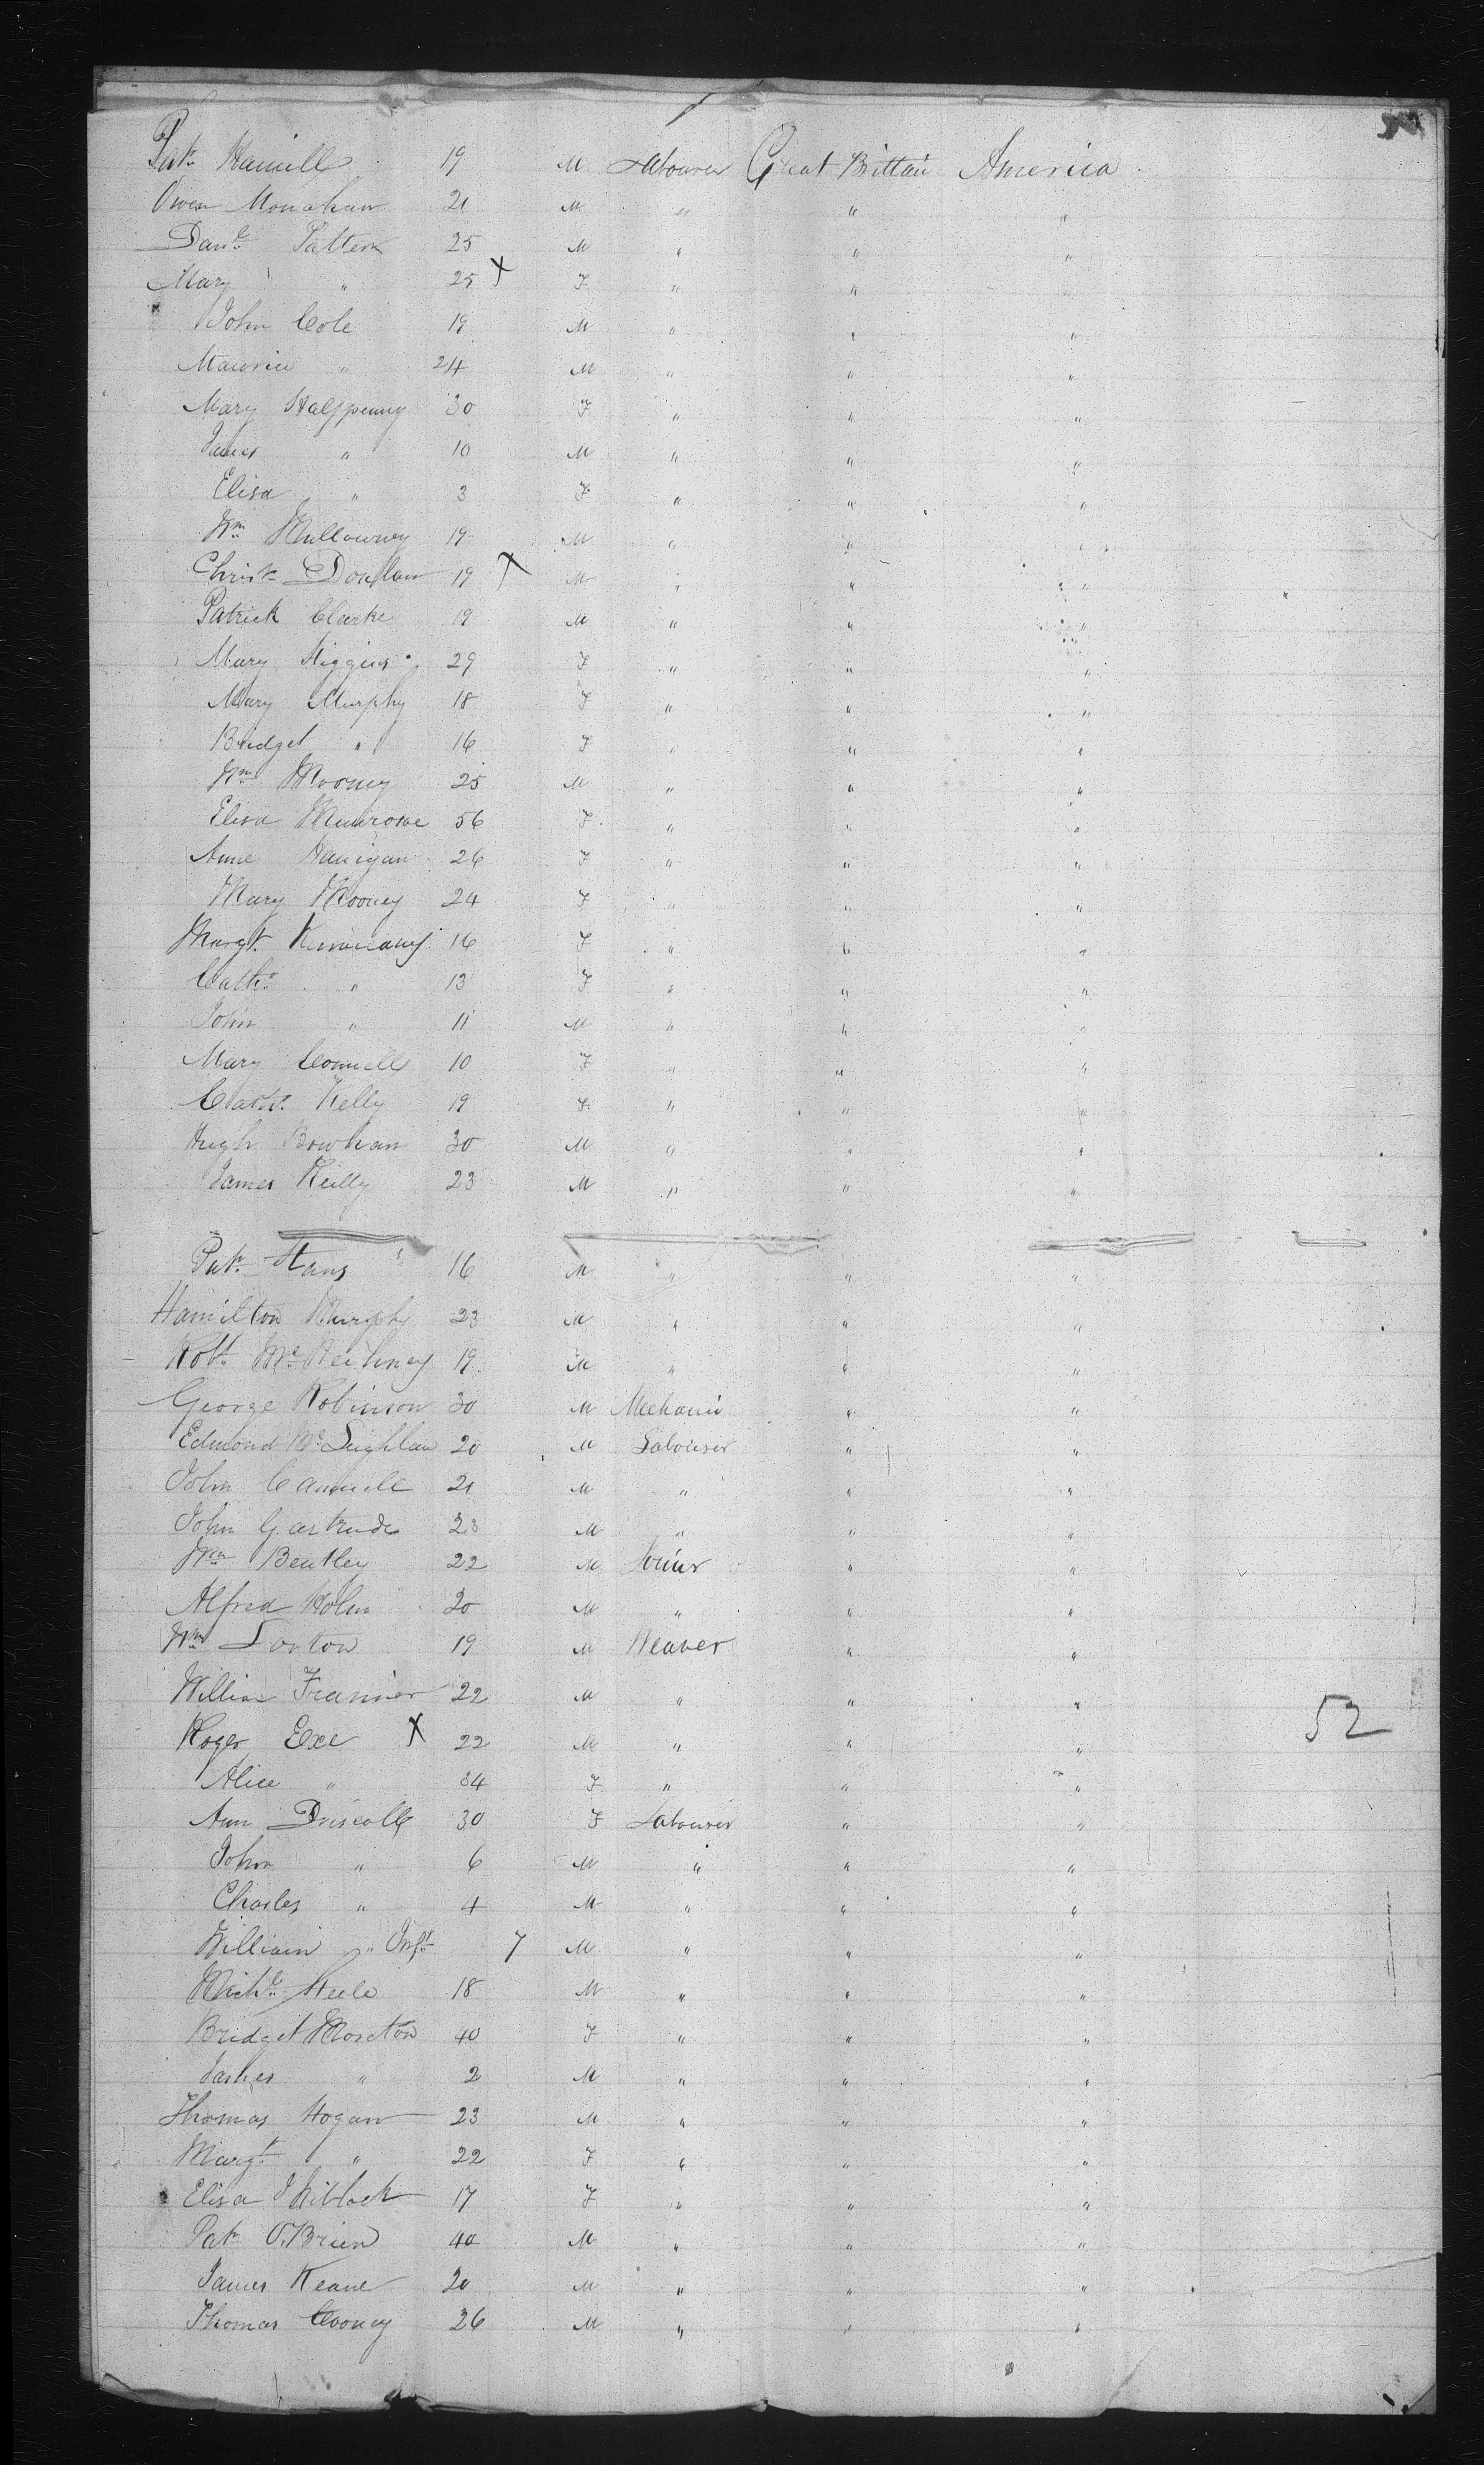 Patk Hamill 19 M Labourer Great Brittain America
Owen Monahan 21 M " " "
Danl Patterk 25 M " " "
Mary " 25 X F " " "
John Cole 19 M " " "
Maurice " 24 M " " "
Mary Halfpenny 30 F " " "
James " 10 M " " "
Elisa " 3 F " " "
Wm Mullowney 19 M " " "
Christr Donlan 19 X M " " "
Patrick Clarke 19 M " " "
Mary Higgins 29 F " " "
Mary Murphy 18 F " " "
Bridget " 16 F " " "
Wm Mooney 25 M " " "
Elisa Munrowe 56 F " " "
Anne Hanigan 26 F " " "
Mary Mooney 24 F " " "
Margt 16 F " " "
Cathe " 13 F " " "
John " 11 M " " "
Mary Connell 10 F " " "
Cathe Kelly 19 F " " "
Hugh Bowhan 30 M " " "
James Reilly 23 M " " "
Patk 16 M " " "
Hamilton Murphy 23 M " " "
Robt 19 M " " "
George Robinson 30 M Mechanic " "
Edmond McLeighlan 20 M Labourer " "
John Cammell 21 M " " "
John Gartrude 23 M " " "
Wm Bentley 22 M " "
Alfred Holm 20 M " " "
Wm Lorton 19 M Weaver " "
William 22 M " " "
Roger Exe X 22 M " " "
Alice " 34 F " " "
Ann Driscoll 30 F Labourer " "
John " 6 M " " "
Charles " 4 M " " "
William " Inft 7 M " " "
Michl Steele 18 M " " "
Bridget Moreton 40 F " " "
James " 2 M " " "
Thomas Hogan 23 M " " "
Margt " 22 F " " "
Elisa J Niblock 17 F " " "
Patk O'Brien 40 M " " "
James Keane 20 M " " "
Thomas Cooney 26 M " " "
52